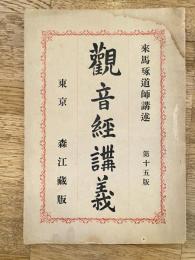 來馬琢道師講述
第十五版
觀音經講義
東京 森江藏版